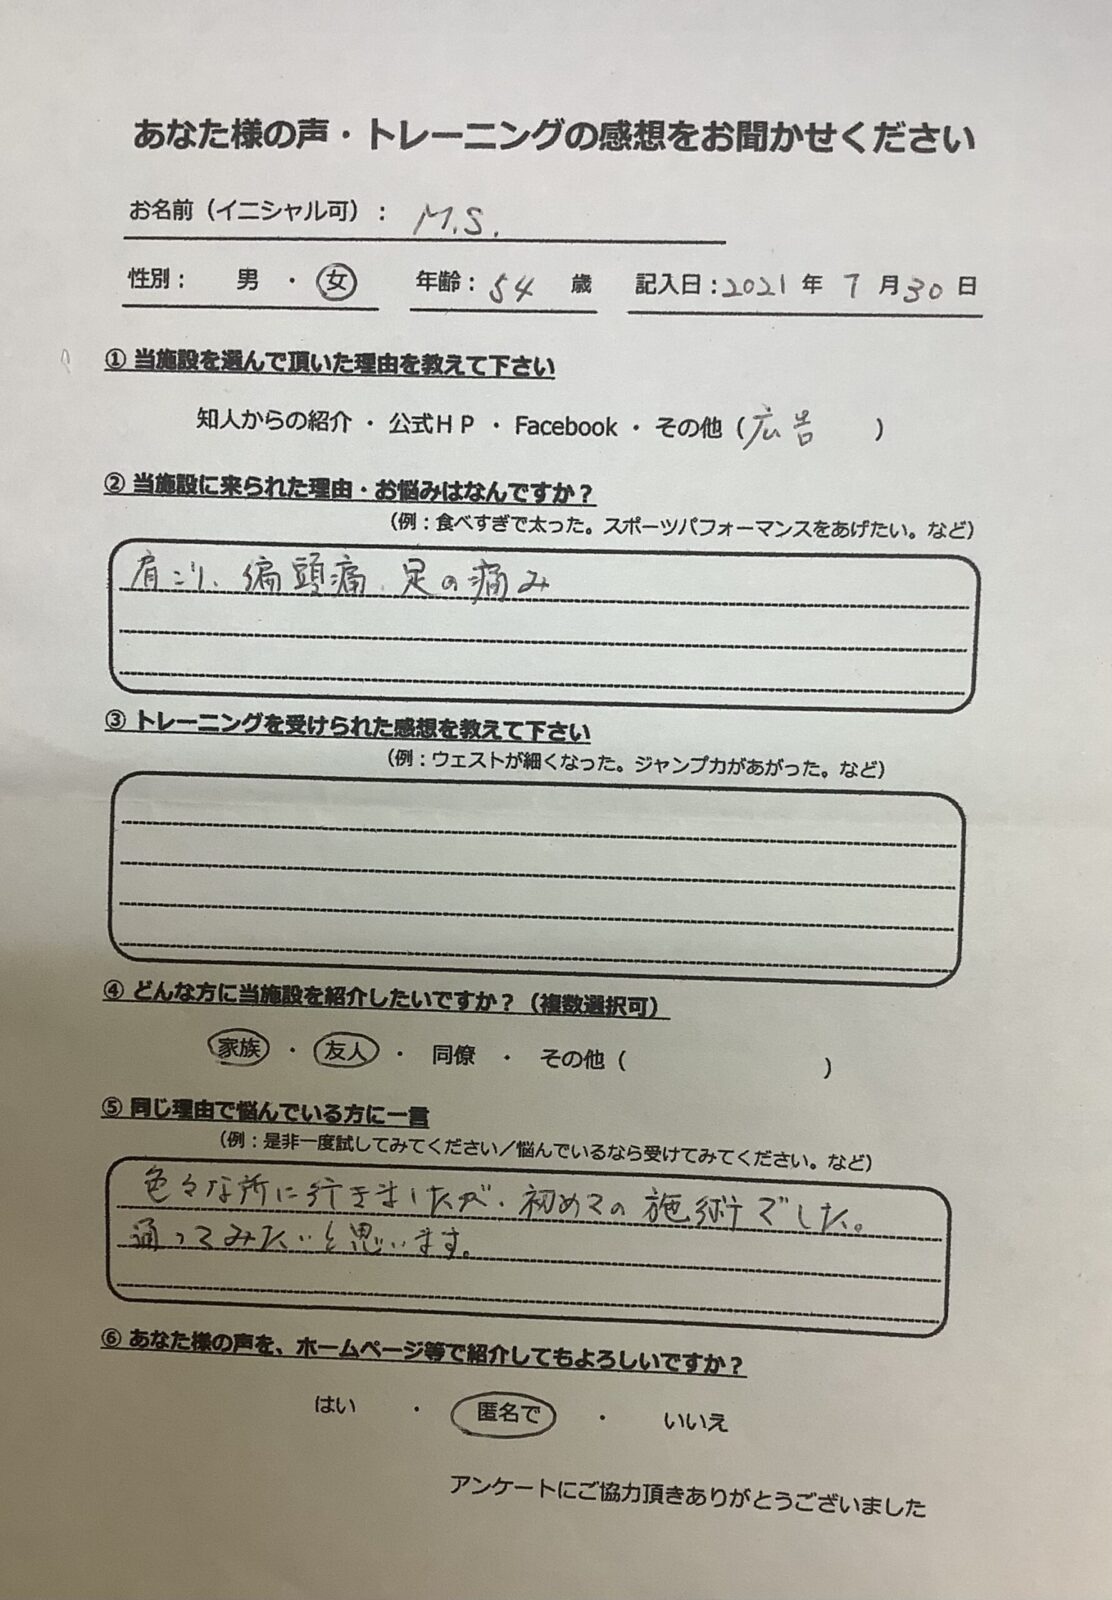 あなた様の声・トレーニングの感想をお聞かせください
お名前（イニシャル可）： M.S.
性別： 男 ・ 女 年齢： 54 歳 記入日：2021 年 7 月 30 日
① 当施設を選んで頂いた理由を教えて下さい
知人からの紹介 ・ 公式ＨＰ ・ Facebook ・ その他（広告 ）
② 当施設に来られた理由・お悩みはなんですか？
（例：食べすぎで太った。スポーツパフォーマンスをあげたい。など）
肩こり、偏頭痛、足の痛み
③ トレーニングを受けられた感想を教えて下さい
（例：ウェストが細くなった。ジャンプ力があがった。など）
④ どんな方に当施設を紹介したいですか？（複数選択可）
家族 ・ 友人 ・ 同僚 ・ その他（ ）
⑤ 同じ理由で悩んでいる方に一言
（例：是非一度試してみてください／悩んでいるなら受けてみてください。など）
色々な所に行きましたが、初めての施術でした。
通ってみたいと思います。
⑥ あなた様の声を、ホームページ等で紹介してもよろしいですか？
はい ・ 匿名で ・ いいえ
アンケートにご協力頂きありがとうございました